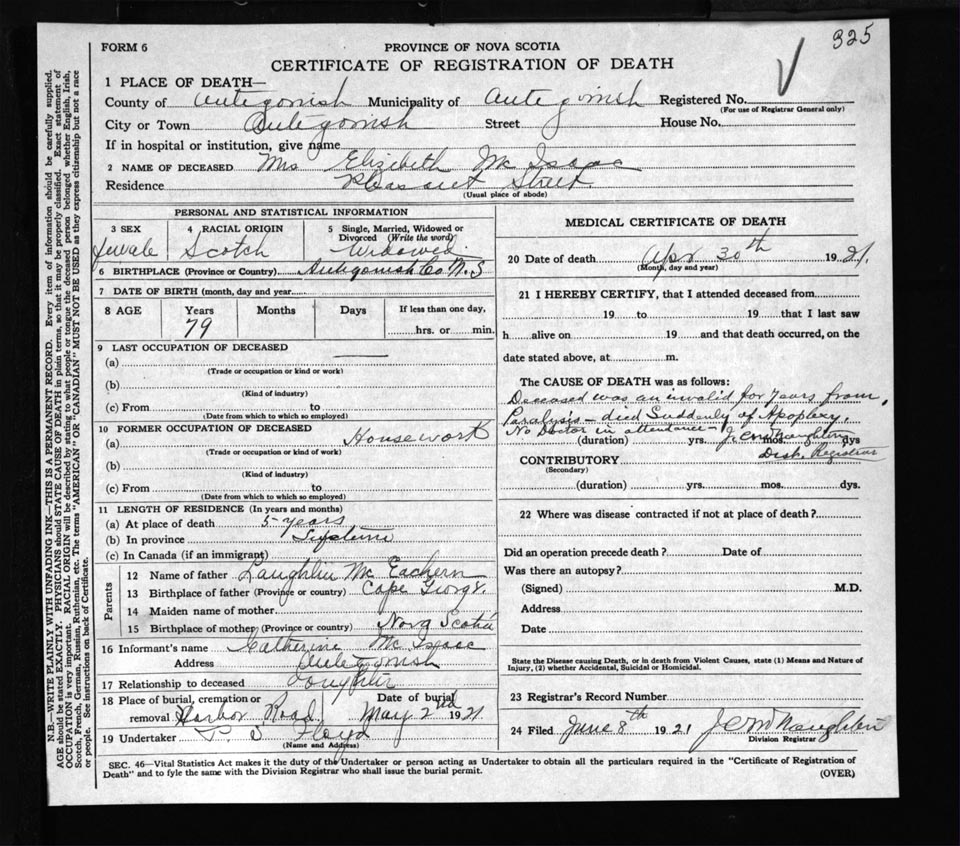 325
FORM 6
PROVINCE OF NOVA SCOTIA
CERTIFICATE OF REGISTRATION OF DEATH
1 PLACE OF DEATH—
County of Antigonish Municipality of Antigonish Registered No.
(For use of Registrar General only)
City or Town Antigonish Street House No.
If in hospital or institution, give name
2 NAME OF DECEASED Mrs Elizibeth McIsaac
Residence Pleasant Street.
(Usual place of abode)
PERSONAL AND STATISTICAL INFORMATION
3 SEX 4 RACIAL ORIGIN 5 Single, Married, Widowed or Divorced (Write the word)
female Scotch Widowed
6 BIRTHPLACE (Province or Country) Antigonish Co N.S
7 DATE OF BIRTH (month, day and year
8 AGE Years Months Days If less than one day,
79 hrs. or min.
9 LAST OCCUPATION OF DECEASED
(a)
(Trade or occupation or kind or work)
(b)
(Kind of industry)
(c) From to
(Date from which to which so employed)
10 FORMER OCCUPATION OF DECEASED
(a) Housework
(Trade or occupation or kind of work)
(b)
(Kind of industry)
(c) From to
(Date from which to which so employed)
11 LENGTH OF RESIDENCE (In years and months)
(a) At place of death 5 years
(b) In province Lifetime
(c) In Canada (if an immigrant)
Parents
12 Name of father Laughlin McEachern
13 Birthplace of father (Province or country) Cape George.
14 Maiden name of mother
15 Birthplace of mother (Province or country) Nova Scotia
16 Informant's name Catherine McIsaac
Address Antigonish
17 Relationship to deceased Doughter
18 Place of burial, cremation or removal Harbor Road Date of burial May 2nd 1921
19 Undertaker P. S Floyd
(Name and Address)
MEDICAL CERTIFICATE OF DEATH
20 Date of death Apr 30th 1921.
(Month, day and year)
21 I HEREBY CERTIFY, that I attended deceased from
19 to 19 that I last saw
h alive on 19 and that death occurred, on the
date stated above, at m.
The CAUSE OF DEATH was as follows:
Deceased was an invalid for years from,
Paralysis - died Suddenly of Apoplexy.
No Doctor in attendance - J.C McNaughton
(duration) yrs. mos. dys
Dist. Registrar
CONTRIBUTORY
(Secondary)
(duration) yrs. mos. dys.
22 Where was disease contracted if not at place of death?
Did an operation precede death? Date of
Was there an autopsy?
(Signed) M.D.
Address
Date
State the Disease causing Death, or in death from Violent Causes, state (1) Means and Nature of
Injury, (2) whether Accidental, Suicidal or Homicidal.
23 Registrar's Record Number
24 Filed June 8th 1921 J C McNaughton
Division Registrar
SEC. 46—Vital Statistics Act makes it the duty of the Undertaker or person acting as Undertaker to obtain all the particulars required in the "Certificate of Registration of
Death" and to fyle the same with the Division Registrar who shall issue the burial permit.
(OVER)
N.B.—WRITE PLAINLY WITH UNFADING INK—THIS IS A PERMANENT RECORD. Every item of information should be carefully supplied.
AGE should be stated EXACTLY. PHYSICIANS should STATE CAUSE OF DEATH in plain terms, so that it may be properly classified. Exact statement of
OCCUPATION is very important. RACIAL ORIGIN will be described by stating to what people or tongue the deceased person belonged whether English, Irish,
Scotch, French, German, Russian, Ruthenian, etc. The terms "AMERICAN" OR "CANADIAN" MUST NOT BE USED as they express citizenship but not a race
or people. See instructions on back of Certificate.